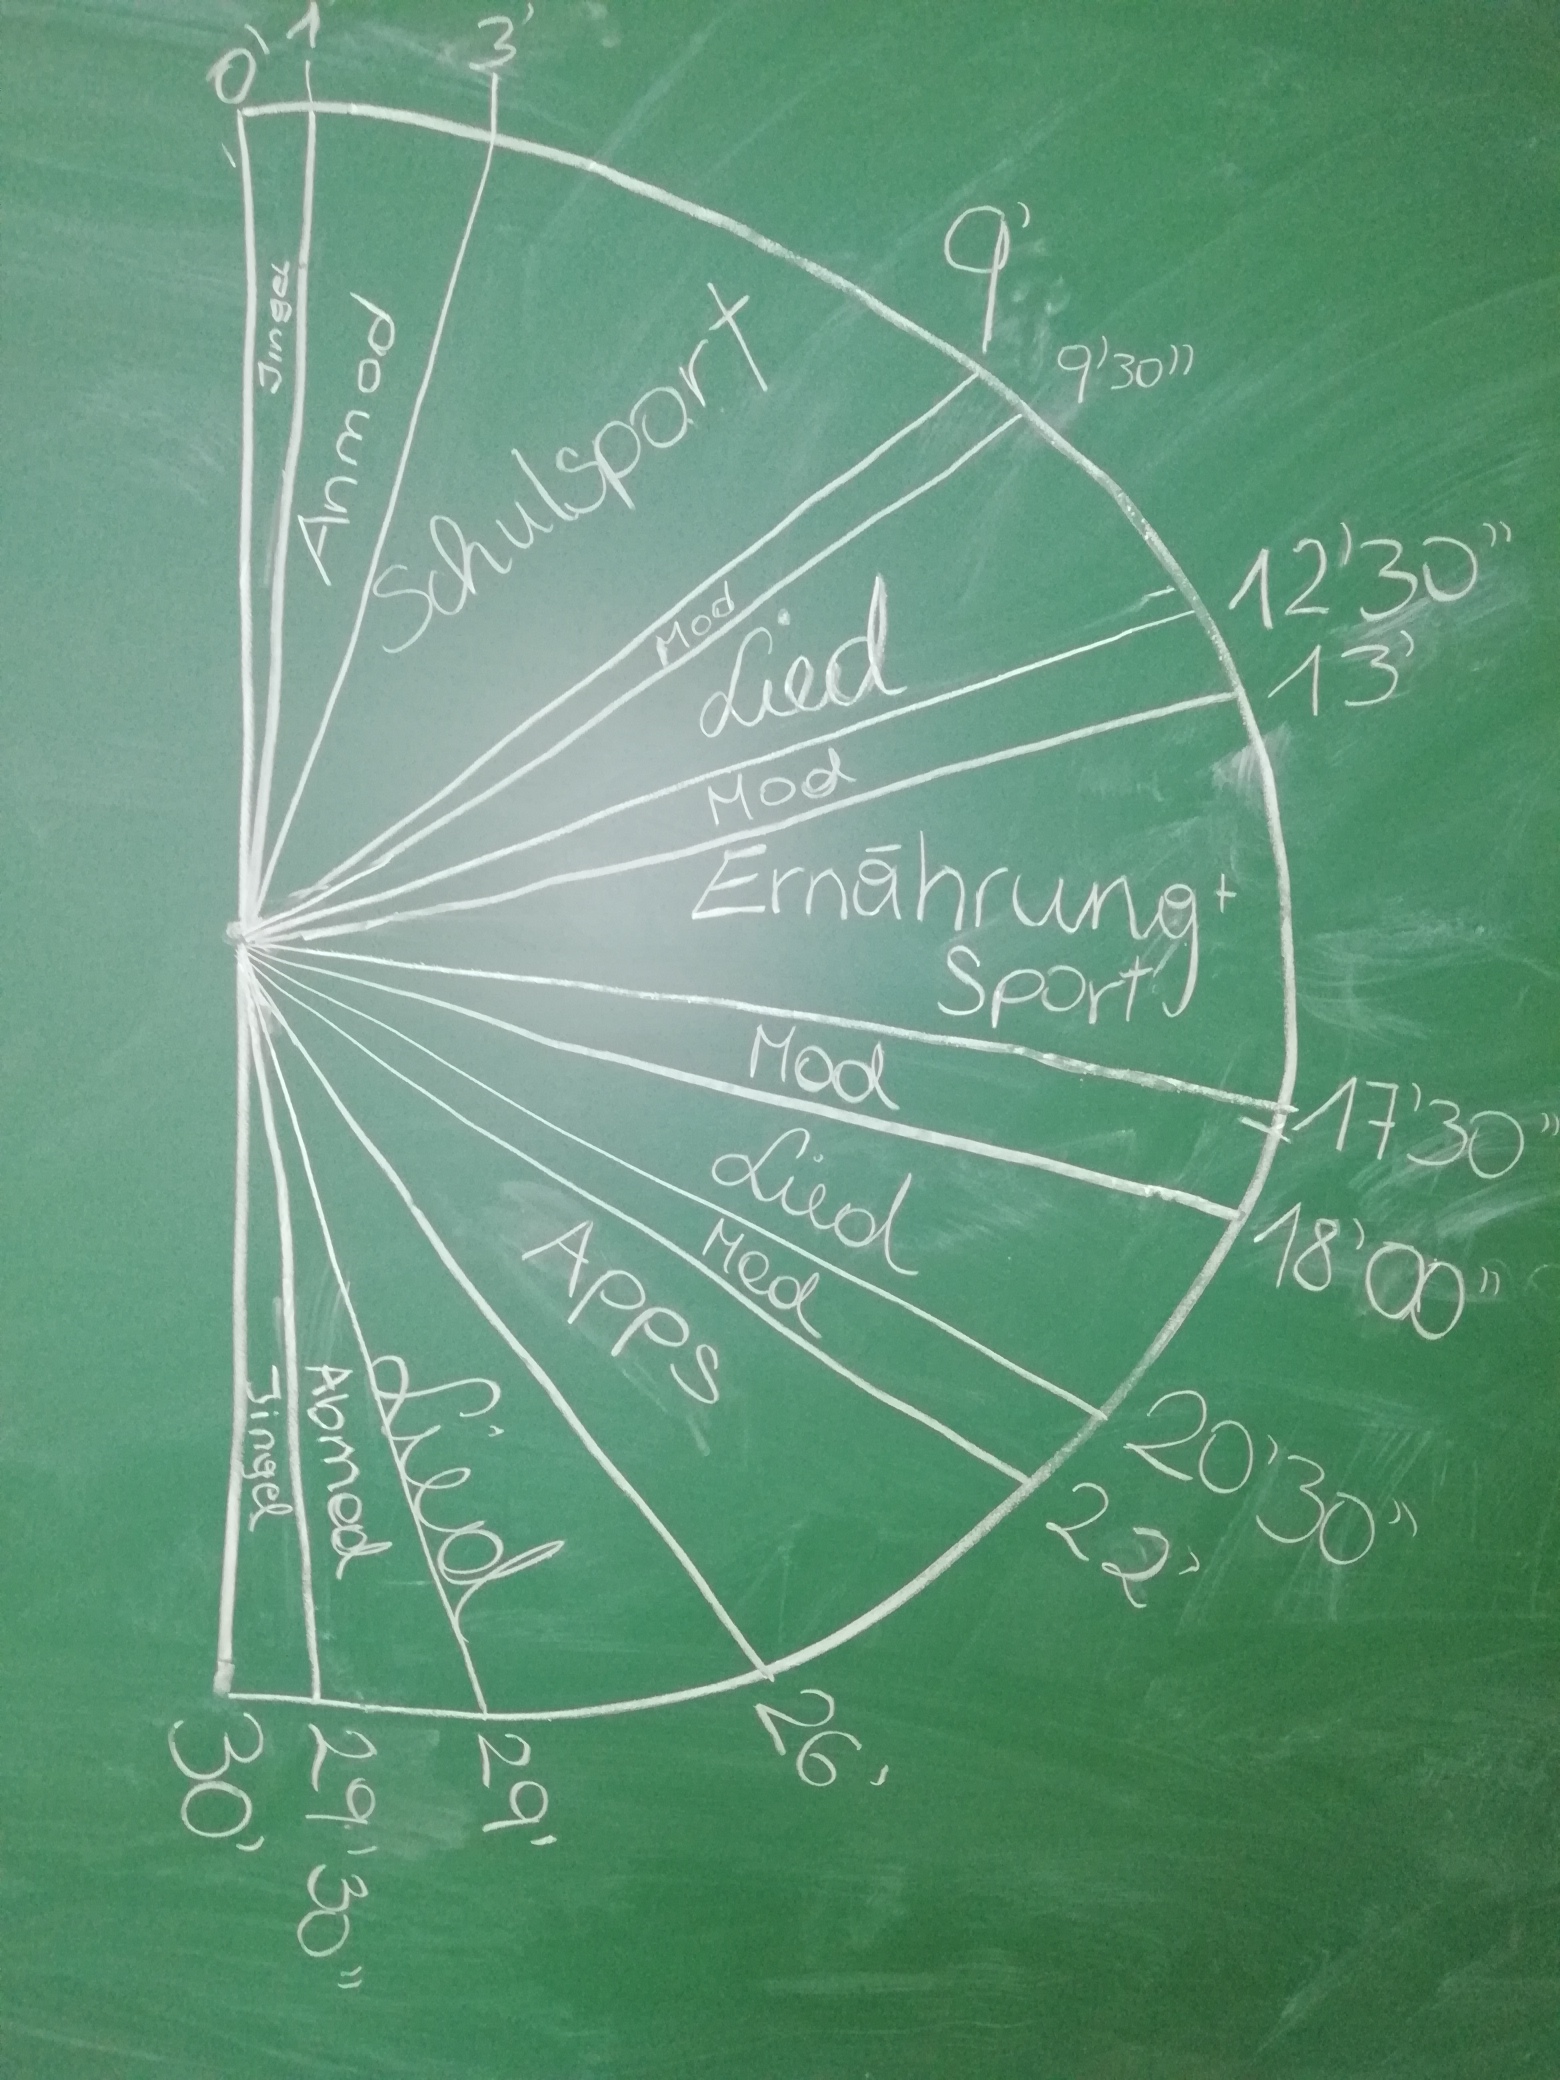 0'
1'
3'
Jingel
Anmod
Schulsport
9'
9'30''
Mod
Lied
12'30''
13'
Mod
Ernährung+
Sport
17'30''
Mod
18'00''
Lied
20'30''
Mod
22'
Apps
26'
Lied
29'
Abmod
29'30''
Jingel
30'